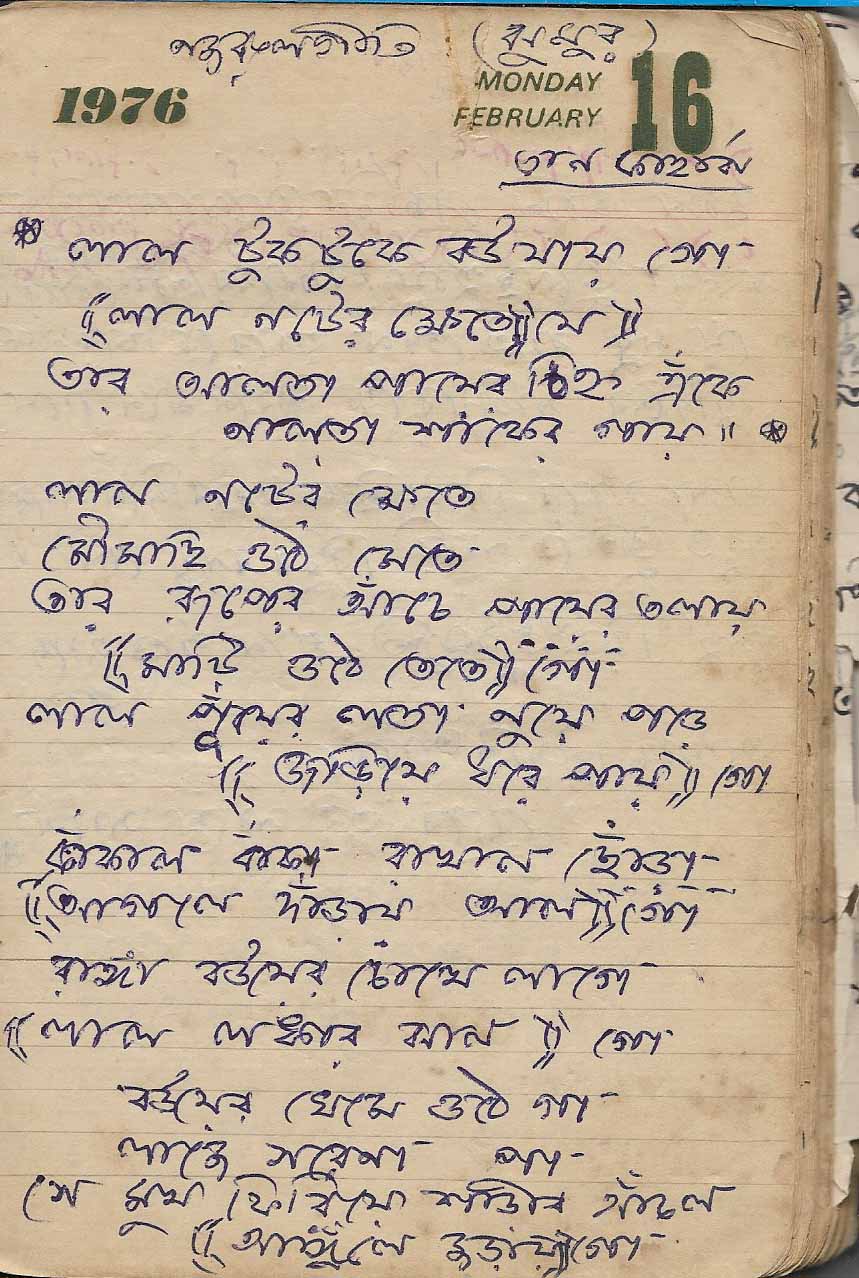 নজরুলগীতি (ঝুমুর)
1976 MONDAY 16
FEBRUARY
তাল কাহারবা
লাল টুকটুকে বউ যায় গো
((লাল নটের ক্ষেতে)) সে))
তার আলতা পায়ের চিহ্ন এঁকে
নালতা শাকের গায় ॥
লাল নটের ক্ষেতে
মৌমাছি ওঠে মেতে
তার রূপের আঁচে পায়ের তলায়
((মাটি ওঠে তেতে)) গো
লাল পুঁয়ের লতা নুয়ে পড়ে
((জড়িয়ে ধরে পায়)) গো
কাঁকাল বাঁকা রাখাল ছোঁড়া
((আগলে দাঁড়ায় আল)) গো
রাঙ্গা বউয়ের চোখে লাগে
((লাল লঙ্কার ঝাল)) গো
বউয়ের ঘেমে ওঠে গা
লাজে সরেনা পা
সে মুখ ফিরিয়ে শাড়ীর আঁচল
((আঙ্গুলে জড়ায়)) গো